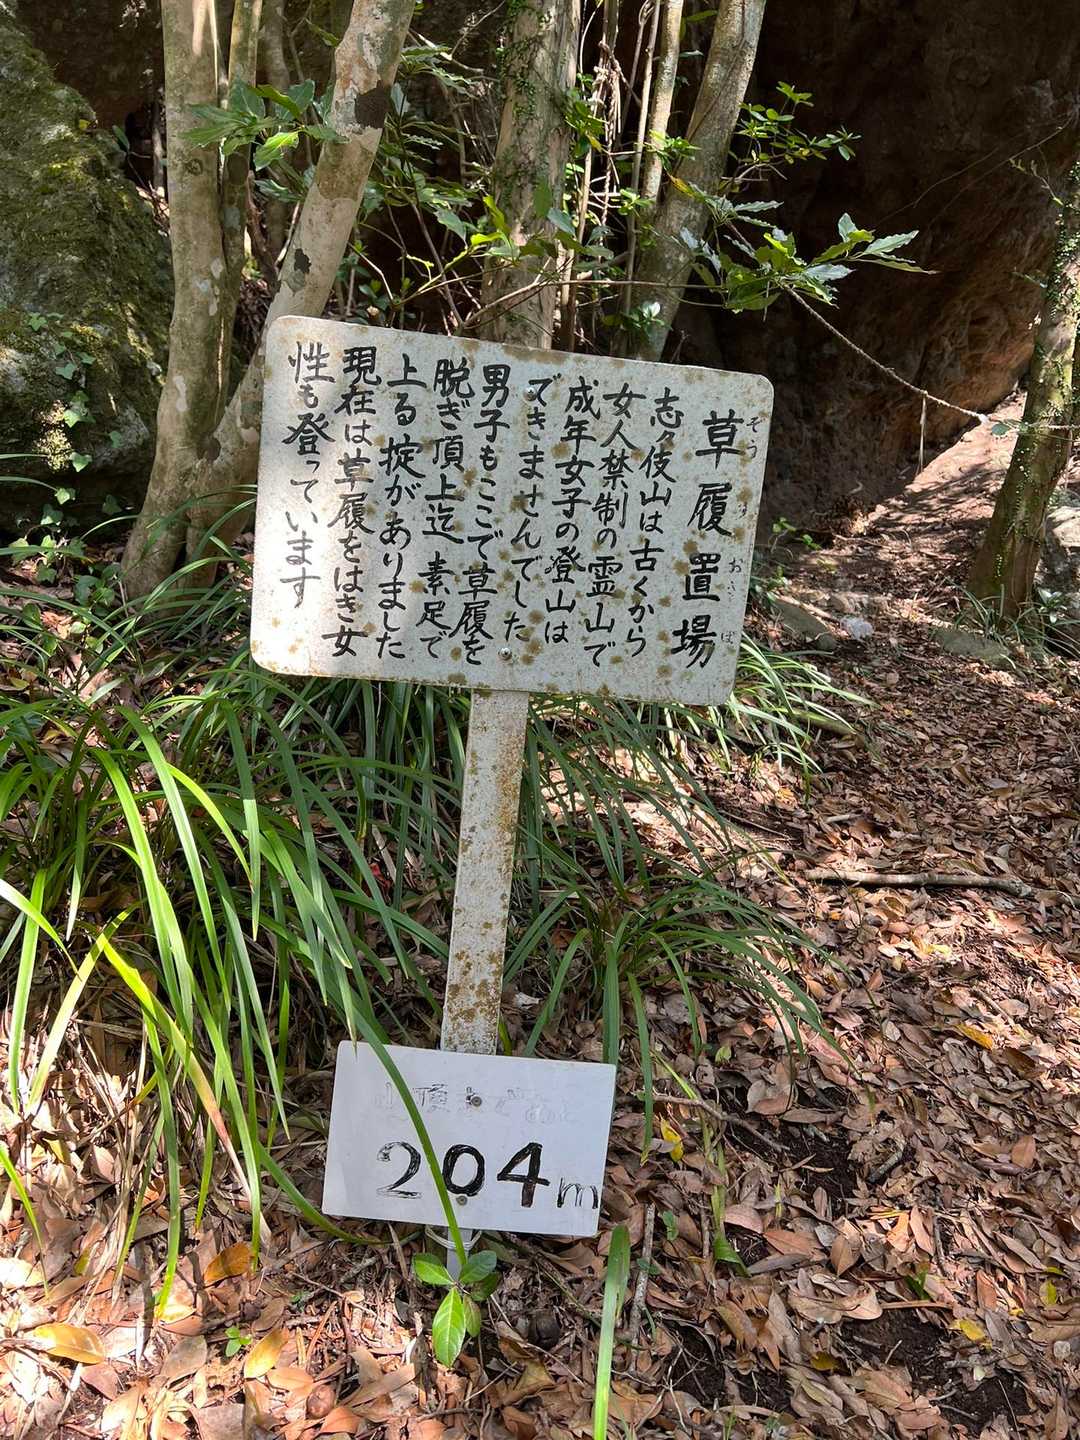 草履置場
ぞうりおきば
志々伎山は古くから
女人禁制の霊山で
成年女子の登山は
できませんでした
男子もここで草履を
脱ぎ頂上迄素足で
上る掟がありました
現在は草履をはき女
性も登っています
山頂まで
204m